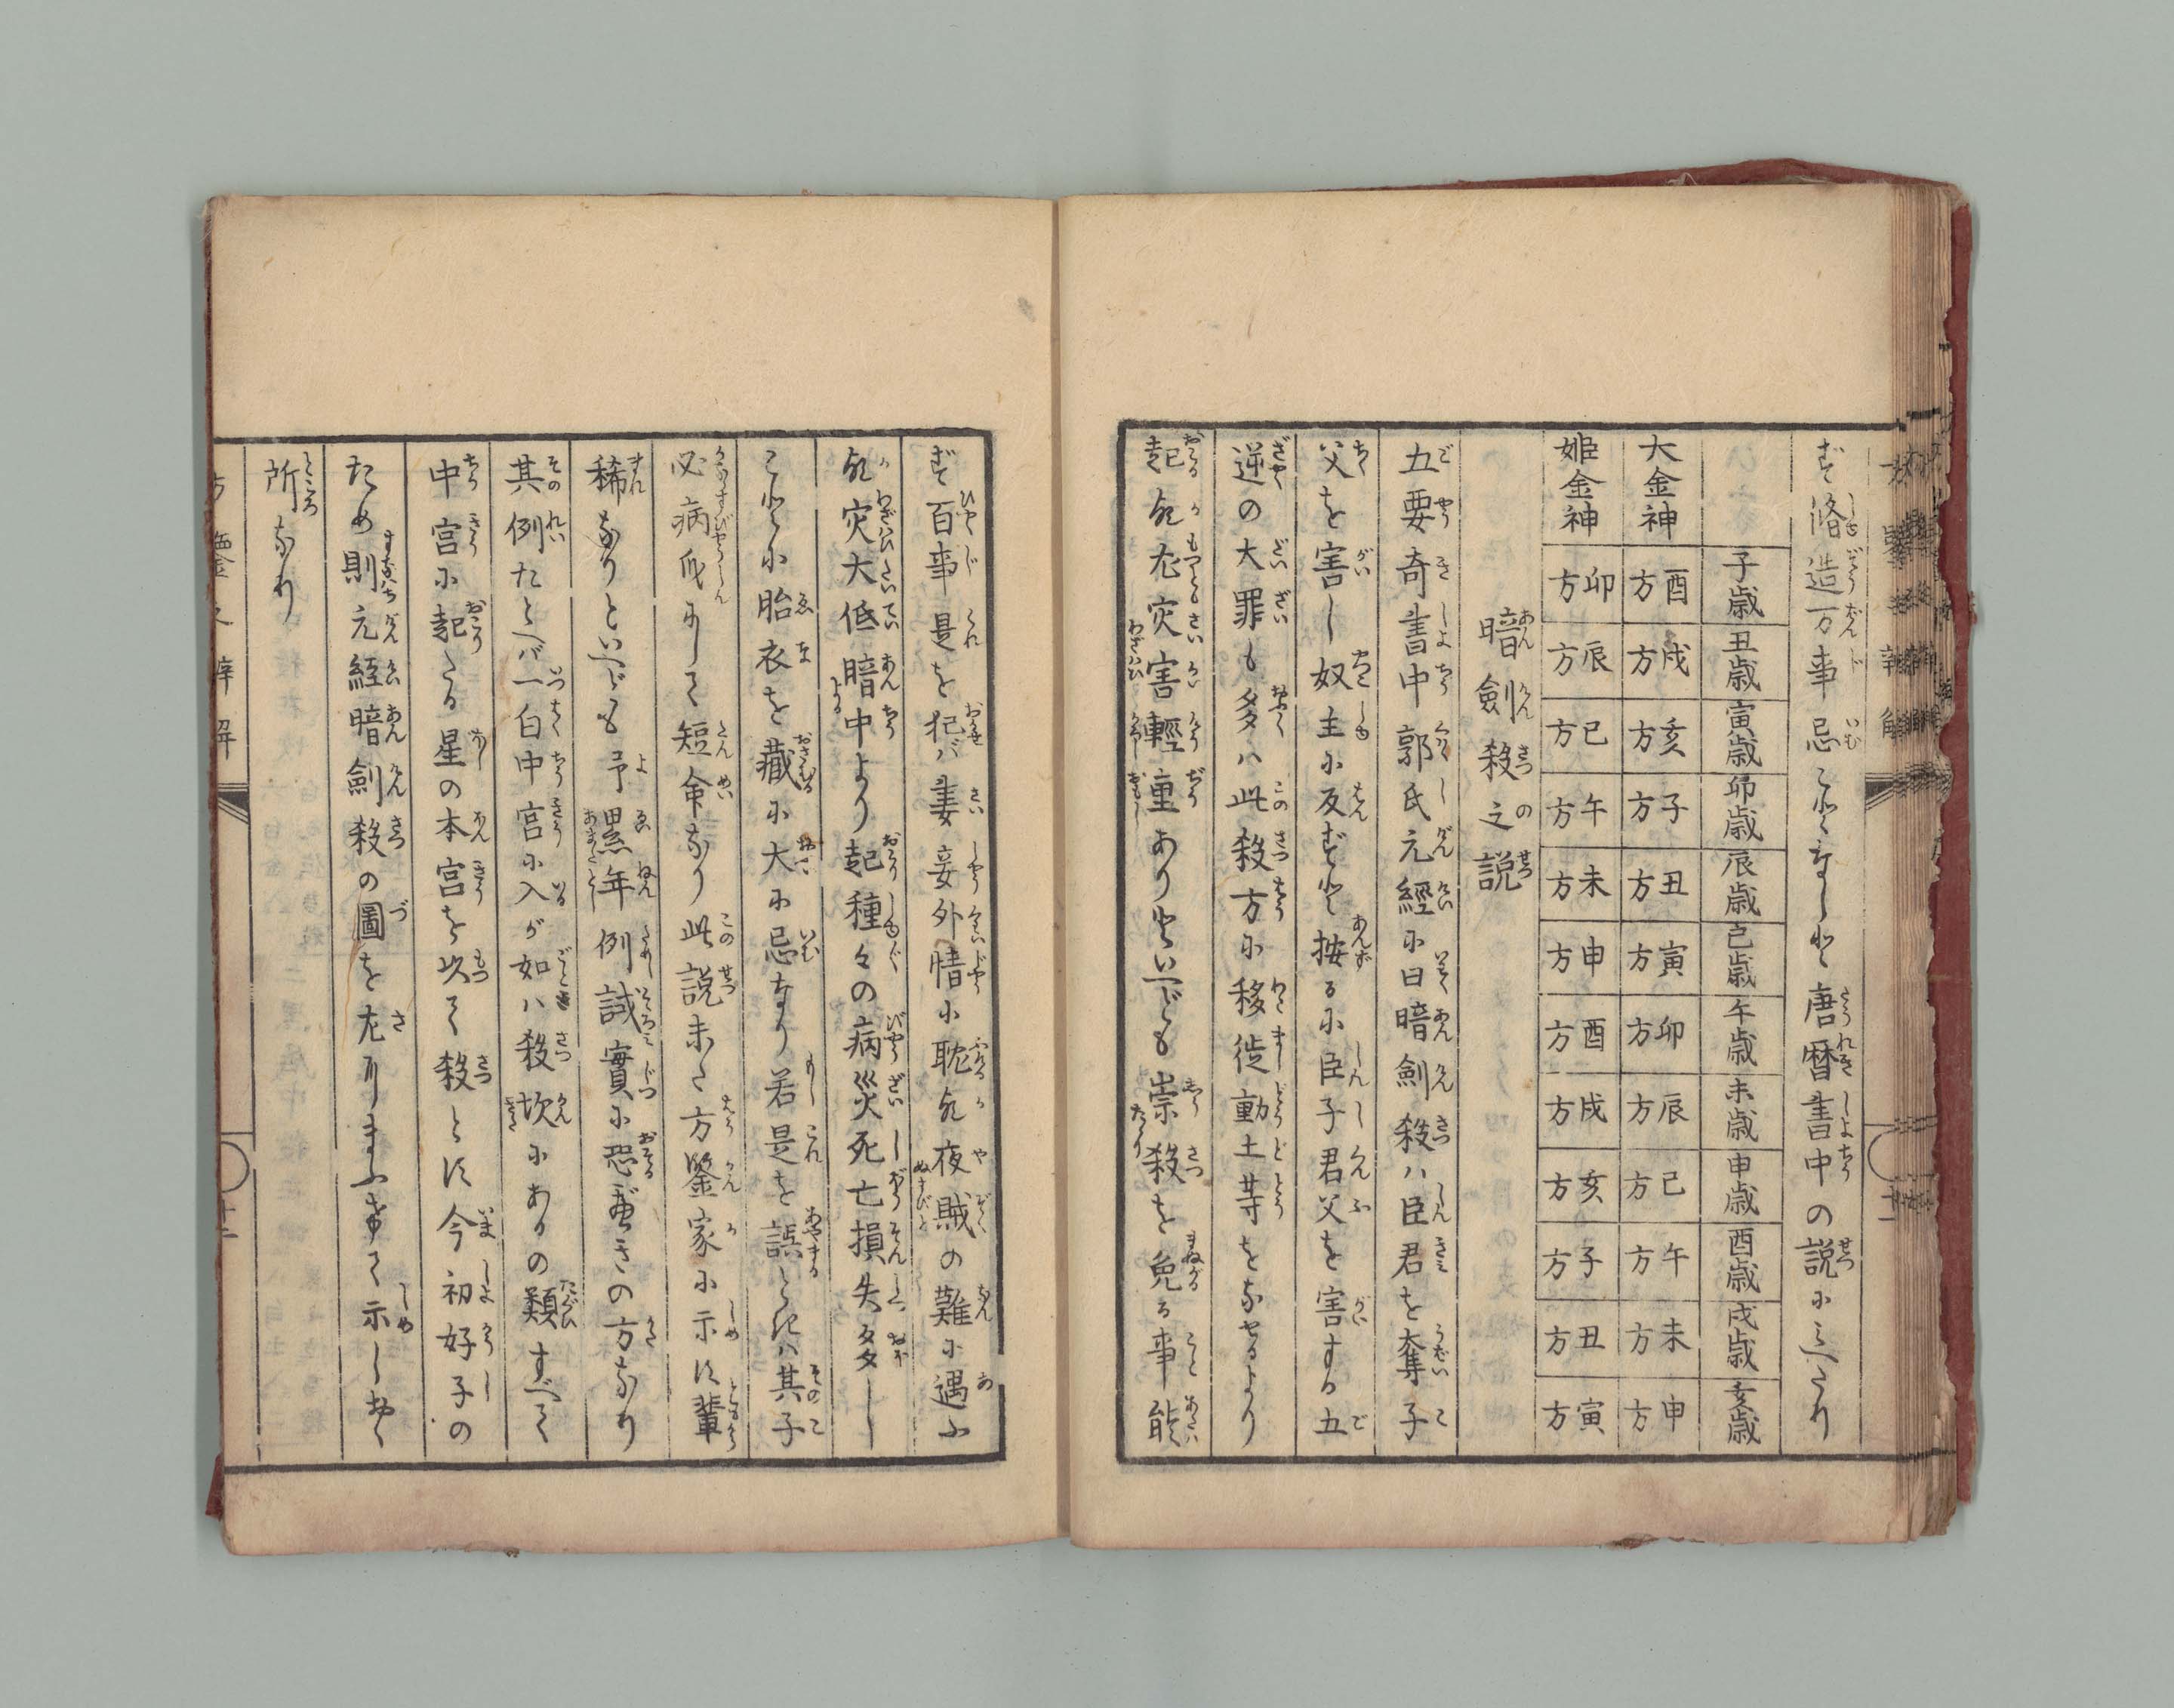 ず脩造万事忌ことなしと唐暦書中の説にみへたり
子歳 丑歳 寅歳 卯歳 辰歳 巳歳 午歳 未歳 申歳 酉歳 戌歳 亥歳
大金神 酉方 戌方 亥方 子方 丑方 寅方 卯方 辰方 巳方 午方 未方 申方
姫金神 卯方 辰方 巳方 午方 未方 申方 酉方 戌方 亥方 子方 丑方 寅方
暗劍殺之説
五要奇書中郭氏元經に曰暗劍殺ハ臣君を奪子
父を害し奴主に反ずと按るに臣子君父を害する五
逆の大罪も多くハ此殺方に移徙動土等をなせるより
起る欤尤灾害輕重ありといへども崇殺を免る事能
ず百事是を犯バ妻妾外情に耽る欤夜賊の難に遇ふ
欤灾大低暗中より起種々の病災死亡損失多し
ことに胎衣を藏に大に忌なり若是を誤ときハ其子
必病身にして短命なり此説未た方鑒家に示す輩
稀なりといへども予累年例試實に恐べきの方なり
其例たとへバ一白中宮に入が如ハ殺坎にあるの類すべて
中宮に起たる星の本宮を以て殺とす今初好子の
ため則元經暗劍殺の圖を左にりまふけて示しおく
所なり
方鑒之辨解